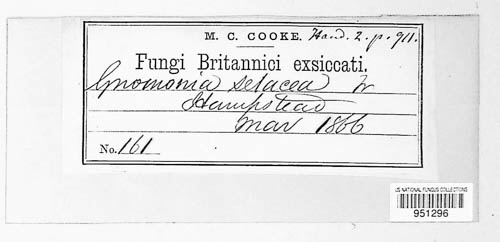 M. C. COOKE. Hand. 2. p. 911.
Fungi Britannici exsiccati.
Gnomonia setacea Fr
Hampstead
Mar 1866
No. 161
US NATIONAL FUNGUS COLLECTIONS
951296